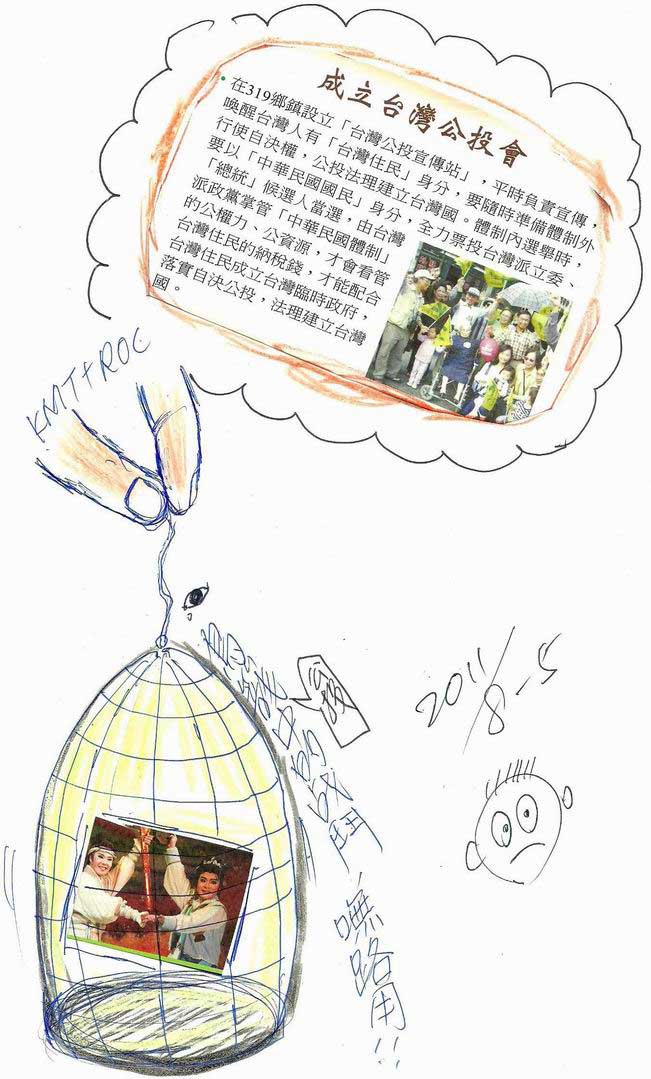 成立台灣公投會
• 在319鄉鎮設立「台灣公投宣傳站」，平時負責宣傳，
喚醒台灣人有「台灣住民」身分，要隨時準備體制外
行使自決權，公投法理建立台灣國。體制內選舉時，
要以「中華民國國民」身分，全力票投台灣派立委、
「總統」候選人當選，由台灣
派政黨掌管「中華民國體制」
的公權力、公資源，才會看管
台灣住民的納稅錢，才能配合
台灣住民成立台灣臨時政府，
落實自決公投，法理建立台灣
國。
KMT+ROC
戰鬥，嘸路用!!
2011/8-5